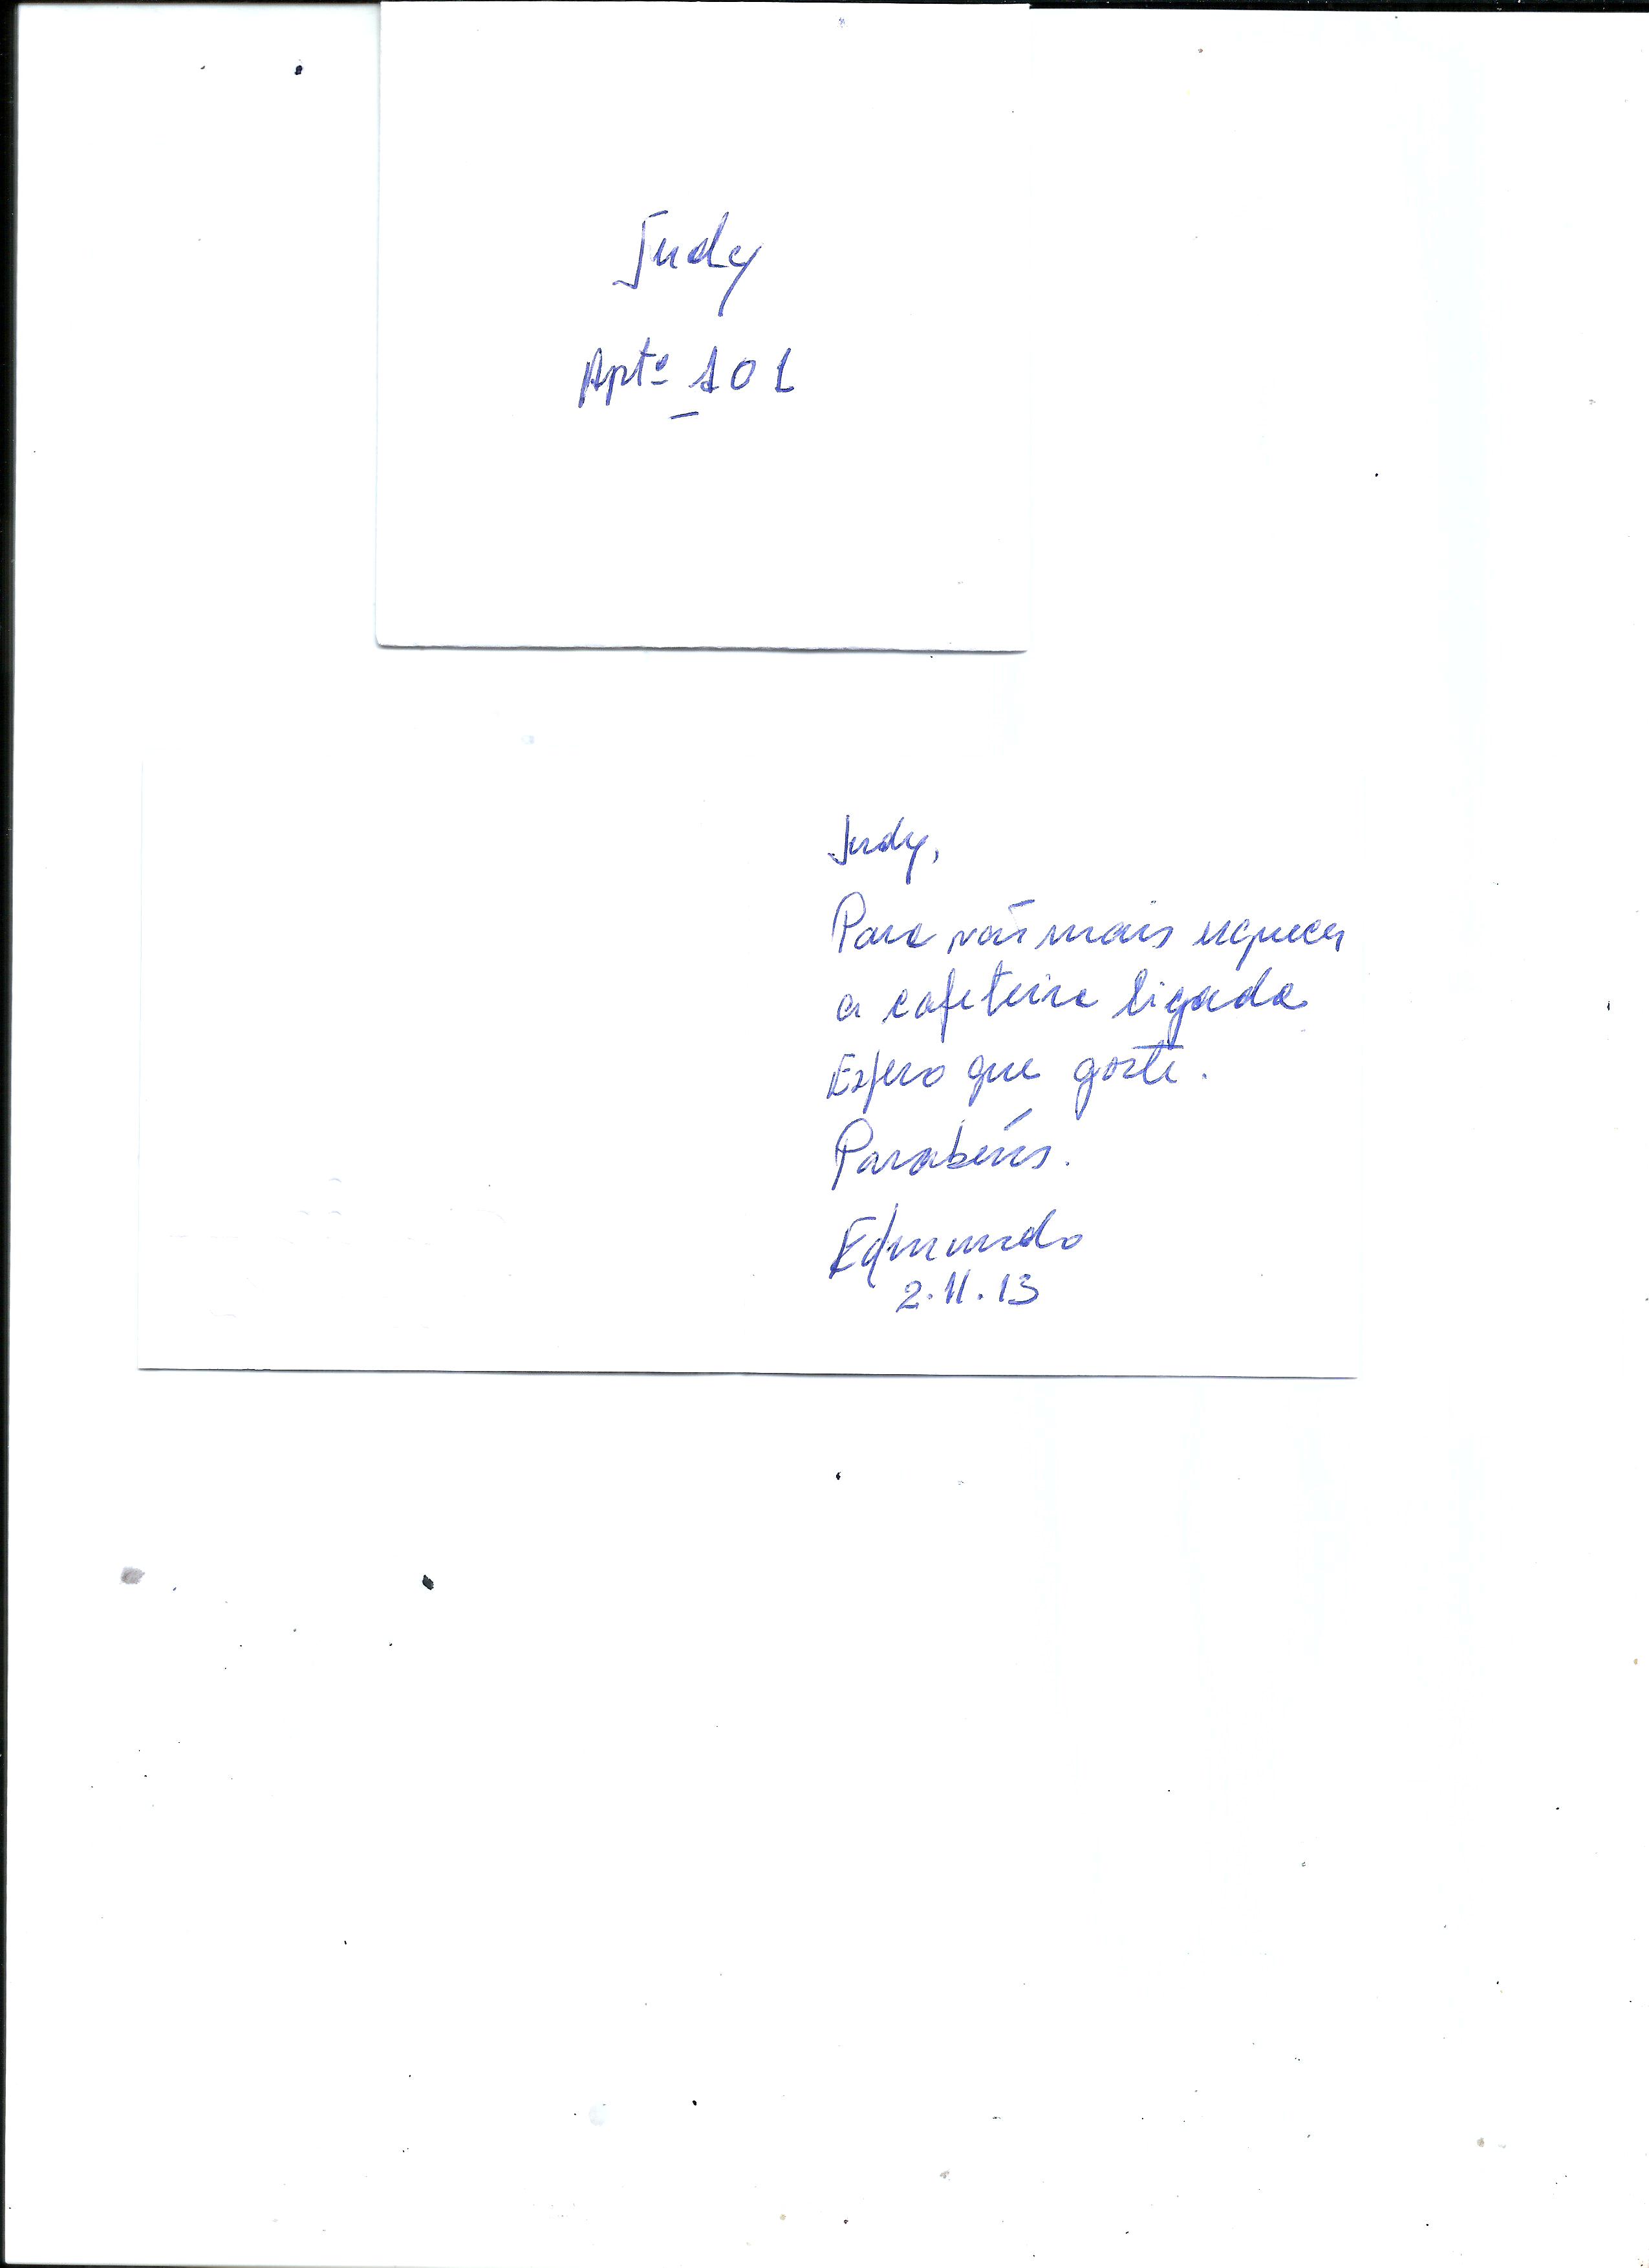 Judy
Aptº 101
Judy,
Para não mais esquecer
a cafeteira ligada
Espero que goste.
Parabéns.
Edmundo
2.11.13